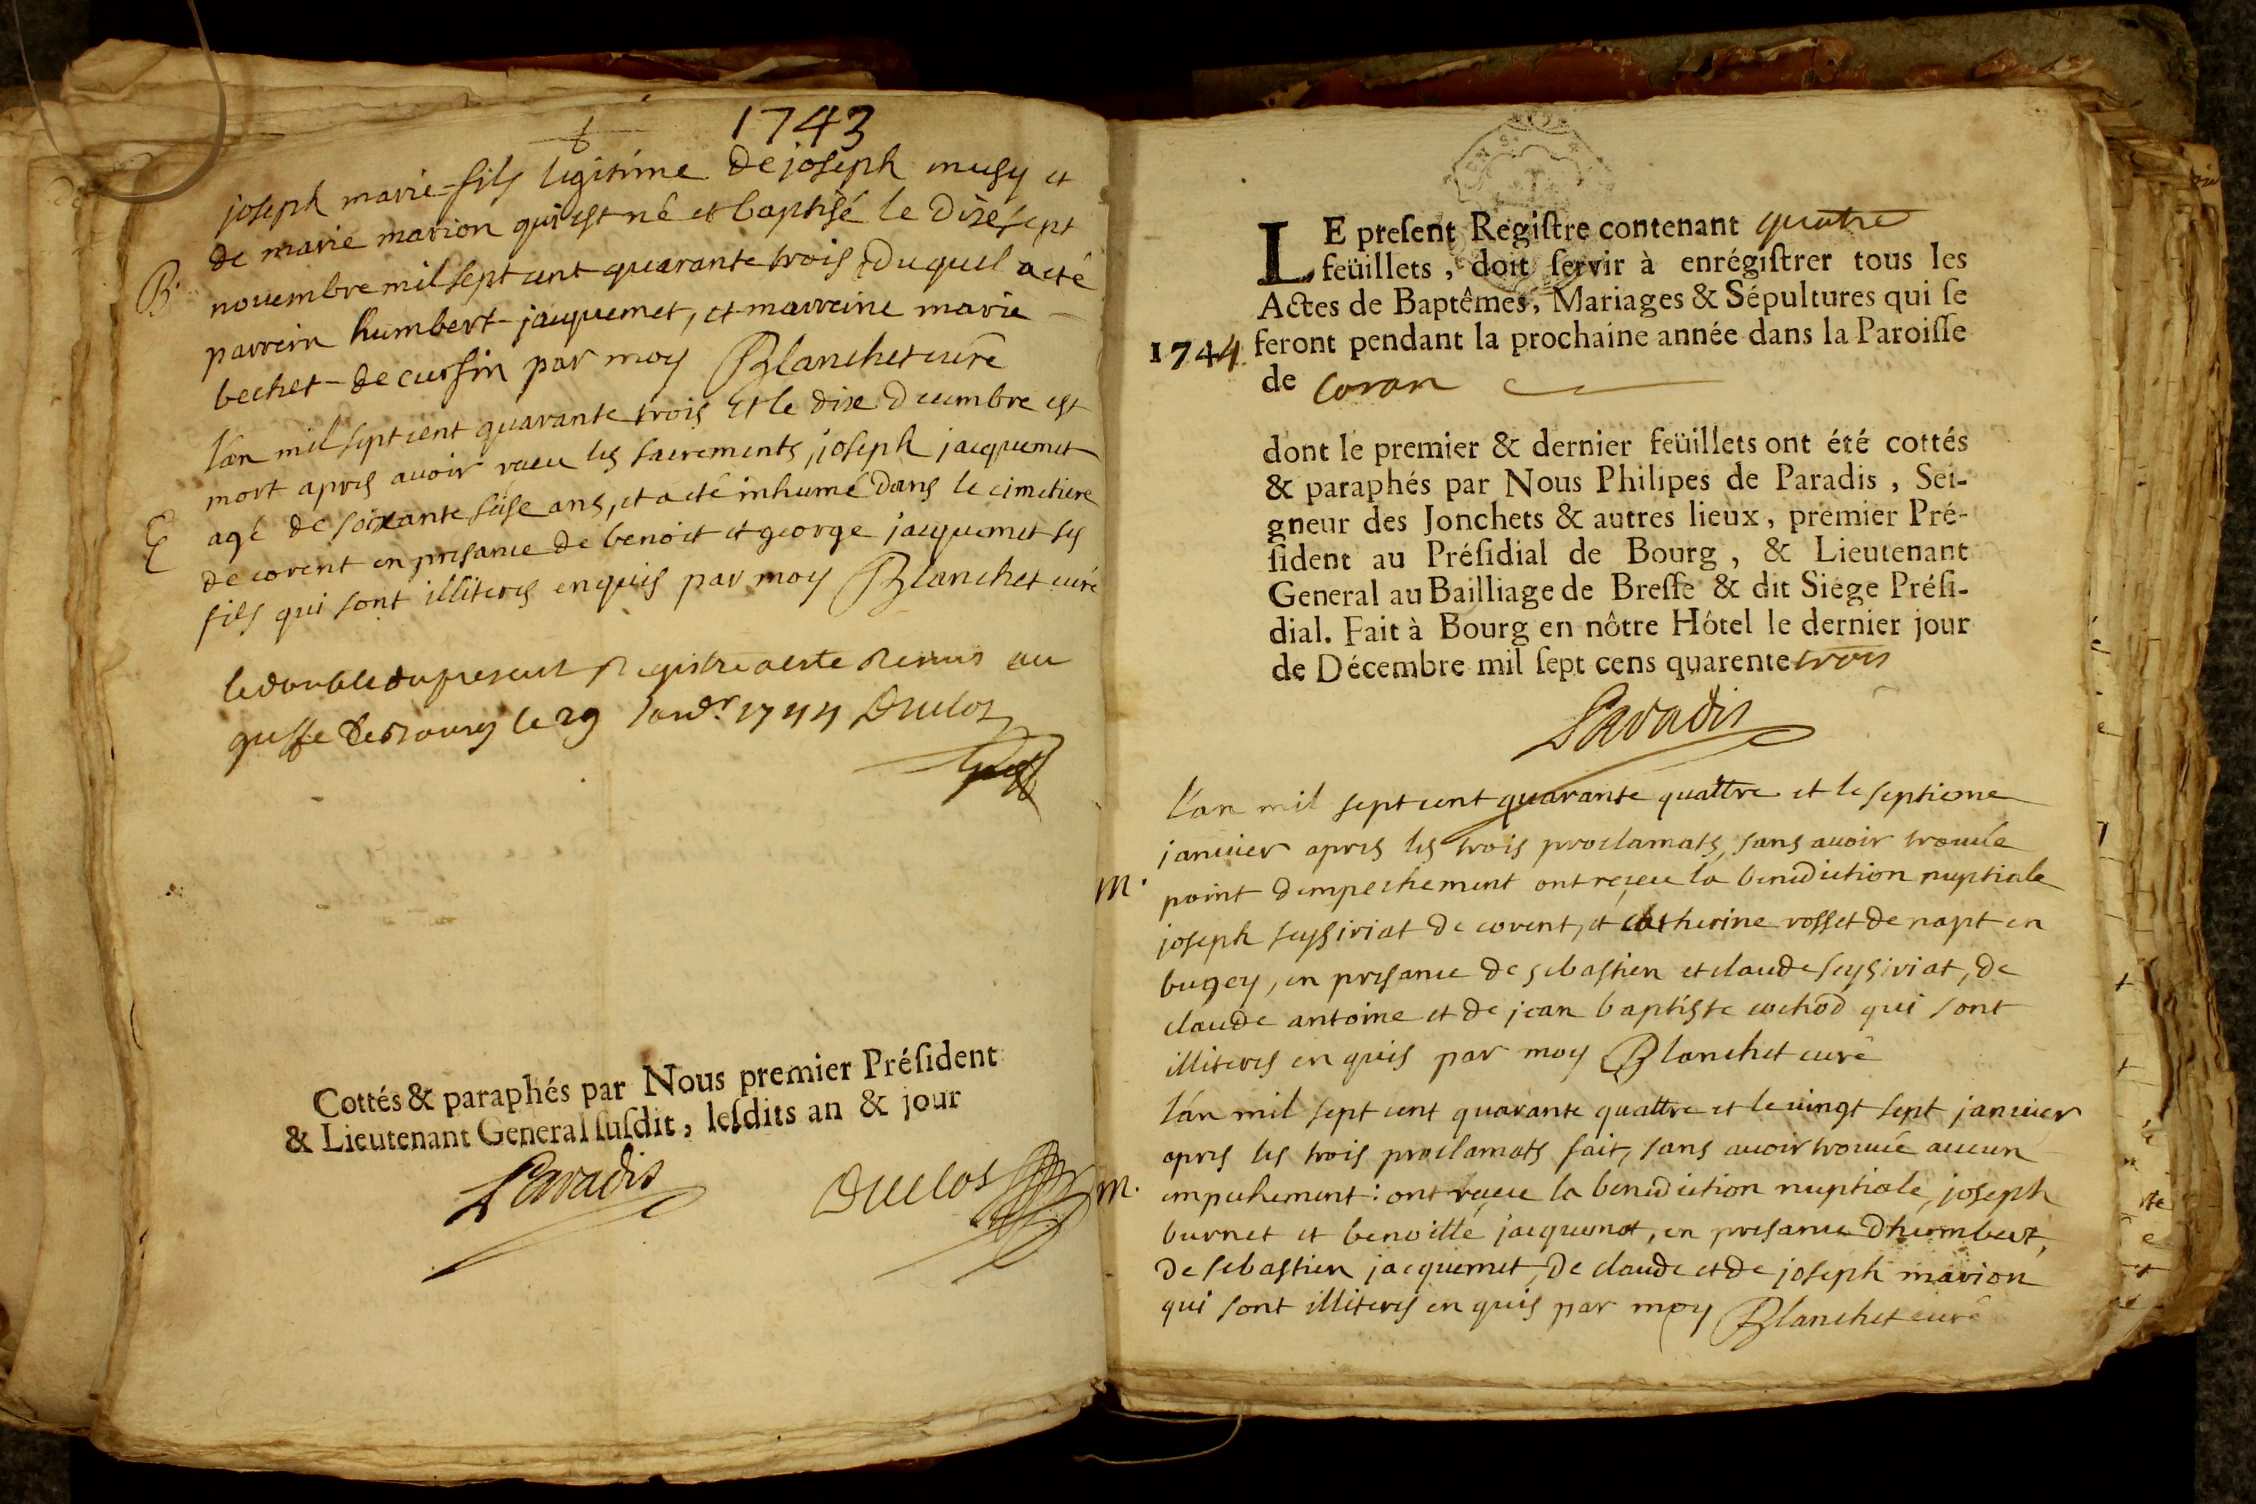 1743
joseph marie fils legitime de joseph musy et
de marie marion qui est né et baptisé le dixsept
B. novembre mil sept cent quarante trois, duquel a eté
parrein humbert jacquemet, et marreine marie
bechet de cursin par moy Blanchet curé
l'an mil sept cent quarante trois et le dix decembre est
mort apres avoir receu les sacrements, joseph jacquemet
E agé de soixante seise ans, et a eté inhumé dans le cimetiere
de corent en presance de benoit et george jacquemet ses
fils qui sont illiteres enquis par moy Blanchet curé
le double du present Registre a este Remis au
greffe de Bourg le 29 Janvr. 1744 Duclos
Cottés & paraphés par Nous premier Préſident
& Lieutenant General ſuſdit, leſdits an & jour
Paradis Duclos
LE preſent Regiſtre contenant quatre
feüillets, doit ſervir à enrégiſtrer tous les
Actes de Baptêmes, Mariages & Sépultures qui ſe
1744 feront pendant la prochaine année dans la Paroiſſe
de Coran
dont le premier & dernier feüillets ont été cottés
& paraphés par Nous Philipes de Paradis, Sei-
gneur des Jonchets & autres lieux, premier Pré-
ſident au Préſidial de Bourg, & Lieutenant
General au Bailliage de Breſſe & dit Siége Préſi-
dial. Fait à Bourg en nôtre Hôtel le dernier jour
de Décembre mil ſept cens quarente trois
Paradis
l'an mil sept cent quarante quattre et le septieme
janvier apres les trois proclamats, sans avoir trouvée
m. point dempechement ont reçeu la benediction nuptiale
joseph seysiriat de corent, et catherine rosset de napt en
bugey, en presance de sebastien et claude seysiriat, de
claude antoine et de jean baptiste cochod qui sont
illiteres enquis par moy Blanchet curé
l'an mil sept cent quarante quattre et le vingt sept janvier
apres les trois proclamats fait, sans avoir trouvée aucun
m. empechement: ont reçeu la benediction nuptiale, joseph
burnet et benoitte jacquemet, en presance d'humbert,
de sebastien jacquemet, de claude et de joseph marion
qui sont illiteres enquis par moy Blanchet curé